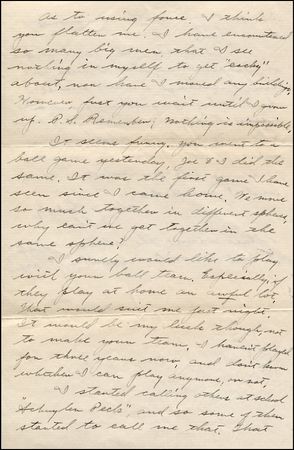 As to using force I think
you flatten me. I have encountered
so many big men, that I see
nothing in myself to get "cocky"
about, nor have I moved any buildings.
However just you wait until I grow
up. P.S. Remember, Nothing is impossible.
It seems funny, you went to a
ball game yesterday, Joe & I did the
same. It was the first game I have
seen since I came home. We move
so much together in different spheres,
why can't we get together in the
same sphere?
I surely would like to play
with your ball team. Especially, if
they stay at home an awful lot,
that would suit me just right.
It would be my luck though, not
to make your team. I haven't played
for three years now, and don't know
whether I can play anymore, or not.
I started calling others at school
"Schuyler Pecks", and so some of them
started to call me that. That